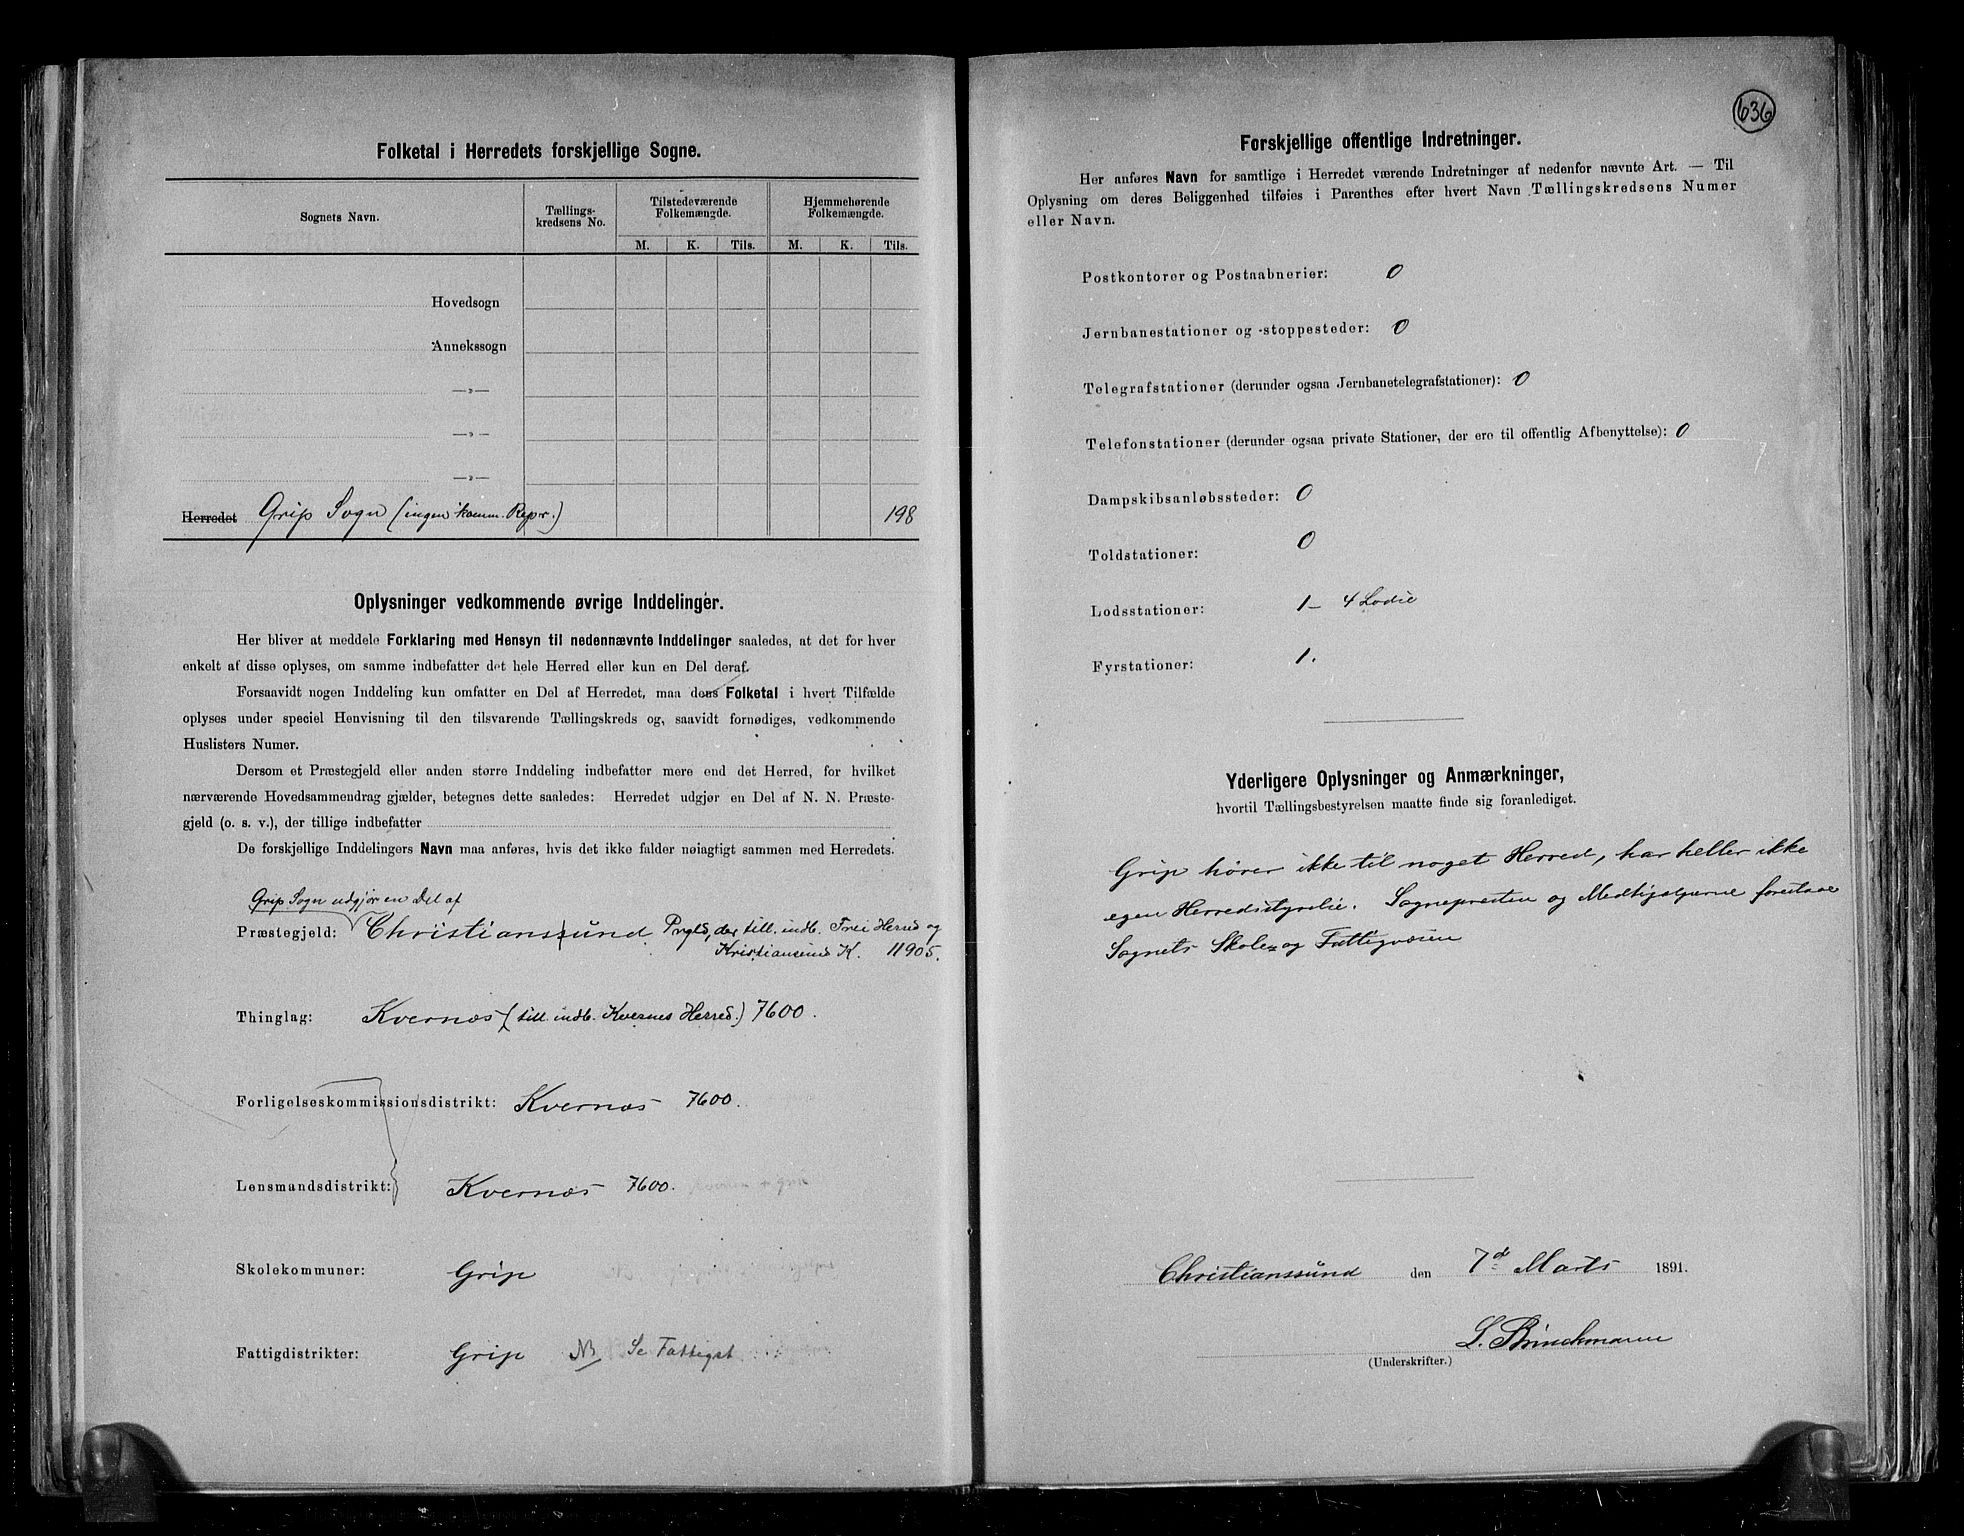 Folketal i Herredets forskjellige Sogne.
Sognets Navn. Tællings-kredsens No. Tilstedeværende Folkemængde. Hjemmehørende Folkemængde.
M. K. Tils. M. K. Tils.
Hovedsogn
Annekssogn
—„—
—„—
—„—
Herredet Grip Sogn (ingen komm. Repr.) 198
Oplysninger vedkommende øvrige Inddelinger.
Her bliver at meddele Forklaring med Hensyn til nedennævnte Inddelinger saaledes, at det for hver
enkelt af disse oplyses, om samme indbefatter det hele Herred eller kun en Del deraf.
Forsaavidt nogen Inddeling kun omfatter en Del af Herredet, maa dens Folketal i hvert Tilfælde
oplyses under speciel Henvisning til den tilsvarende Tællingskreds og, saavidt fornødiges, vedkommende
Huslisters Numer.
Dersom et Præstegjeld eller anden større Inddeling indbefatter mere end det Herred, for hvilket
nærværende Hovedsammendrag gjælder, betegnes dette saaledes: Herredet udgjør en Del af N. N. Præste-
gjeld (o. s. v.), der tillige indbefatter
De forskjellige Inddelingers Navn maa anføres, hvis det ikke falder nøiagtigt sammen med Herredets.
Grip Sogn udgjør en Del af
Præstegjeld: Christianssund Prgld, der till. indb. Frei Herred og
Kristiansund K. 11905.
Thinglag: Kvernæs (till. indb. Kvernes Herred.) 7600.
Forligelseskommissionsdistrikt: Kvernæs 7600.
Lensmandsdistrikt: Kvernæs 7600.
Skolekommuner: Grip
Fattigdistrikter: Grip NB Se Fattigst
636
Forskjellige offentlige Indretninger.
Her anføres Navn for samtlige i Herredet værende Indretninger af nedenfor nævnte Art. — Til
Oplysning om deres Beliggenhed tilføies i Parenthes efter hvert Navn Tællingskredsens Numer
eller Navn.
Postkontorer og Postaabnerier: 0
Jernbanestationer og -stoppesteder: 0
Telegrafstationer (derunder ogsaa Jernbanetelegrafstationer): 0
Telefonstationer (derunder ogsaa private Stationer, der ere til offentlig Afbenyttelse): 0
Dampskibsanløbssteder: 0
Toldstationer: 0
Lodsstationer: 1 – 4 Lodse
Fyrstationer: 1.
Yderligere Oplysninger og Anmærkninger,
hvortil Tællingsbestyrelsen maatte finde sig foranlediget.
Grip hører ikke til noget Herred, har heller ikke
egen Herredsstyrelse. Sognepresten og Medtilsynerne forestaae
Sognets Skole- og Fattigvæsen
Christianssund den 7de Marts 1891.
L. Brinckmann
(Underskrifter.)